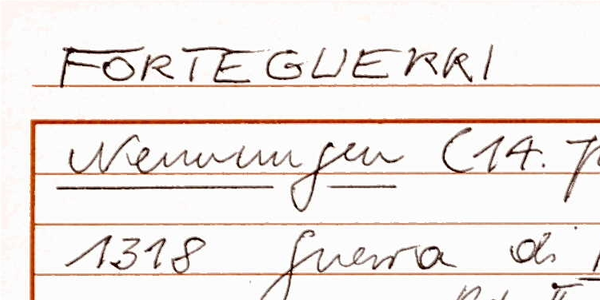 FORTEGUERRI
Nennungen (14.
1318 guerra di